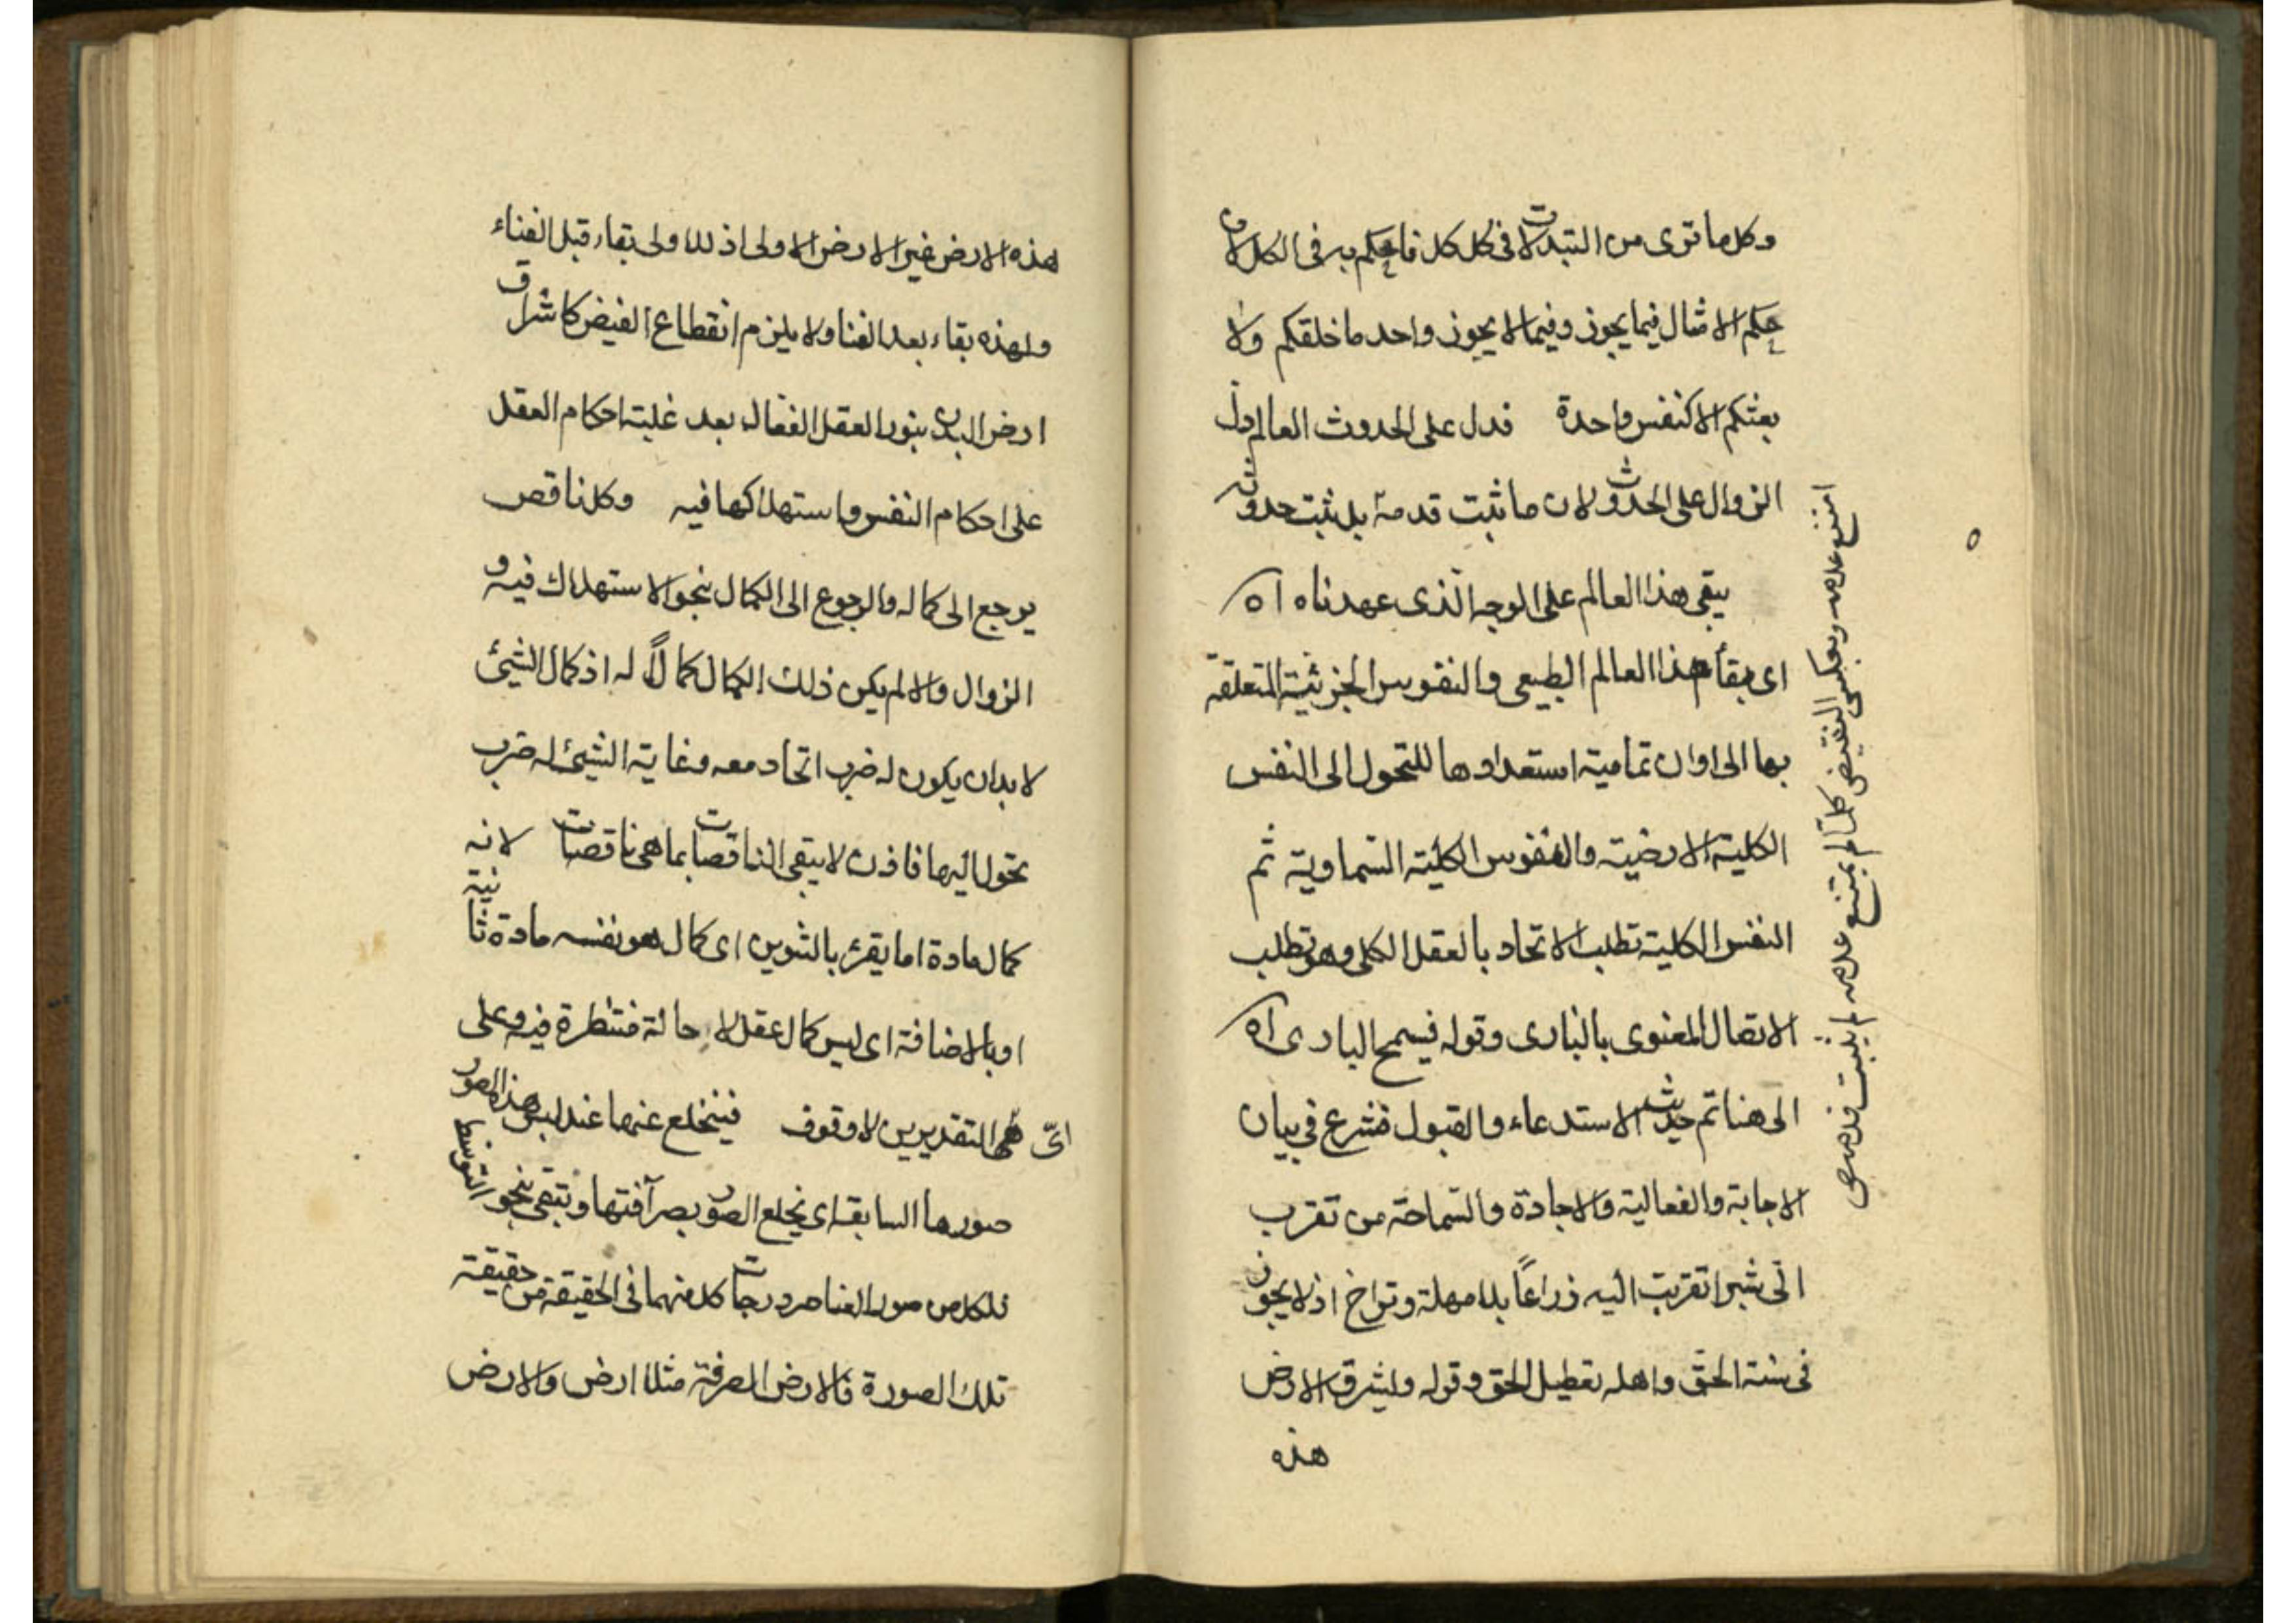 وكل ما ترى من التبدلات فى كل كل فاحكم به فى الكل لان
حكم الامثال فيما يجوز وفيما لا يجوز واحد ما خلقكم ولا
بعثكم الا كنفس واحدة فدل على الحدوث العالم ودل
الزوال على الحدوث لان ما ثبت قدمه بل ثبت حدوثه
يبقى هذا العالم على الوجه الذى عهدناه اه
اى بقاء هذا العالم الطبيعى والنفوس الجزئية المتعلقة
بها الى اوان تمامية استعدادها للتحول الى النفس
الكلية الارضية والنفوس الكلية السماوية ثم
النفس الكلية تطلب الاتحاد بالعقل الكلى وهو تطلب
الاتصال المعنوى بالبارى وقوله فيسمح البارى اه
الى هنا تم حديث الاستدعاء والقبول فشرع فى بيان
الاجابة والفعالية والاجادة والسماحة من تقرب
الى شبرا تقربت اليه ذراعاً بلا مهلة وتراخ اذ لا يجوز
فى سنة الحق واهله تعطيل الحق وقوله وليشرق الارض
هذه
امتنع عدمه وبعكس النقيض كلما لم يمتنع عدمه لم يثبت قدمه صح
هذه الارض غير الارض الاولى اذ للاولى بقاء قبل الفناء
ولهذه بقاء بعد الفنا ولا يلزم انقطاع الفيض كاشراق
ارض البدن بنور العقل الفعال بعد غلبة احكام العقل
على احكام النفس واستهلاكها فيه وكل ناقص
يرجع الى كماله والرجوع الى الكمال بنحو الاستهلاك فيه و
الزوال والا لم يكن ذلك الكمال كمالاً له اذ كمال الشيئ
لا بد ان يكون له ضرب اتحاد معه وغاية الشيئ له ضرب
تحول اليها فاذن لا يبقى الناقصات بما هى ناقصات لانه
كمال مادة اما يقرء بالتنوين اى كمال هو بنفسه مادة ثانية
او بالاضافة اى ليس كمال عقل لا حالة منتظرة فيه وعلى
اىّ التقديرين لا وقوف فينخلع عنها عند لبس هذه الصور
صورها السابقة اى يخلع الصور بصرافتها وتبقى بنحو التوسط
فلكل من صور العناصر درجات كل منهما فى الحقيقة من حقيقة
تلك الصورة فالارض الصرفة مثلا ارض والارض